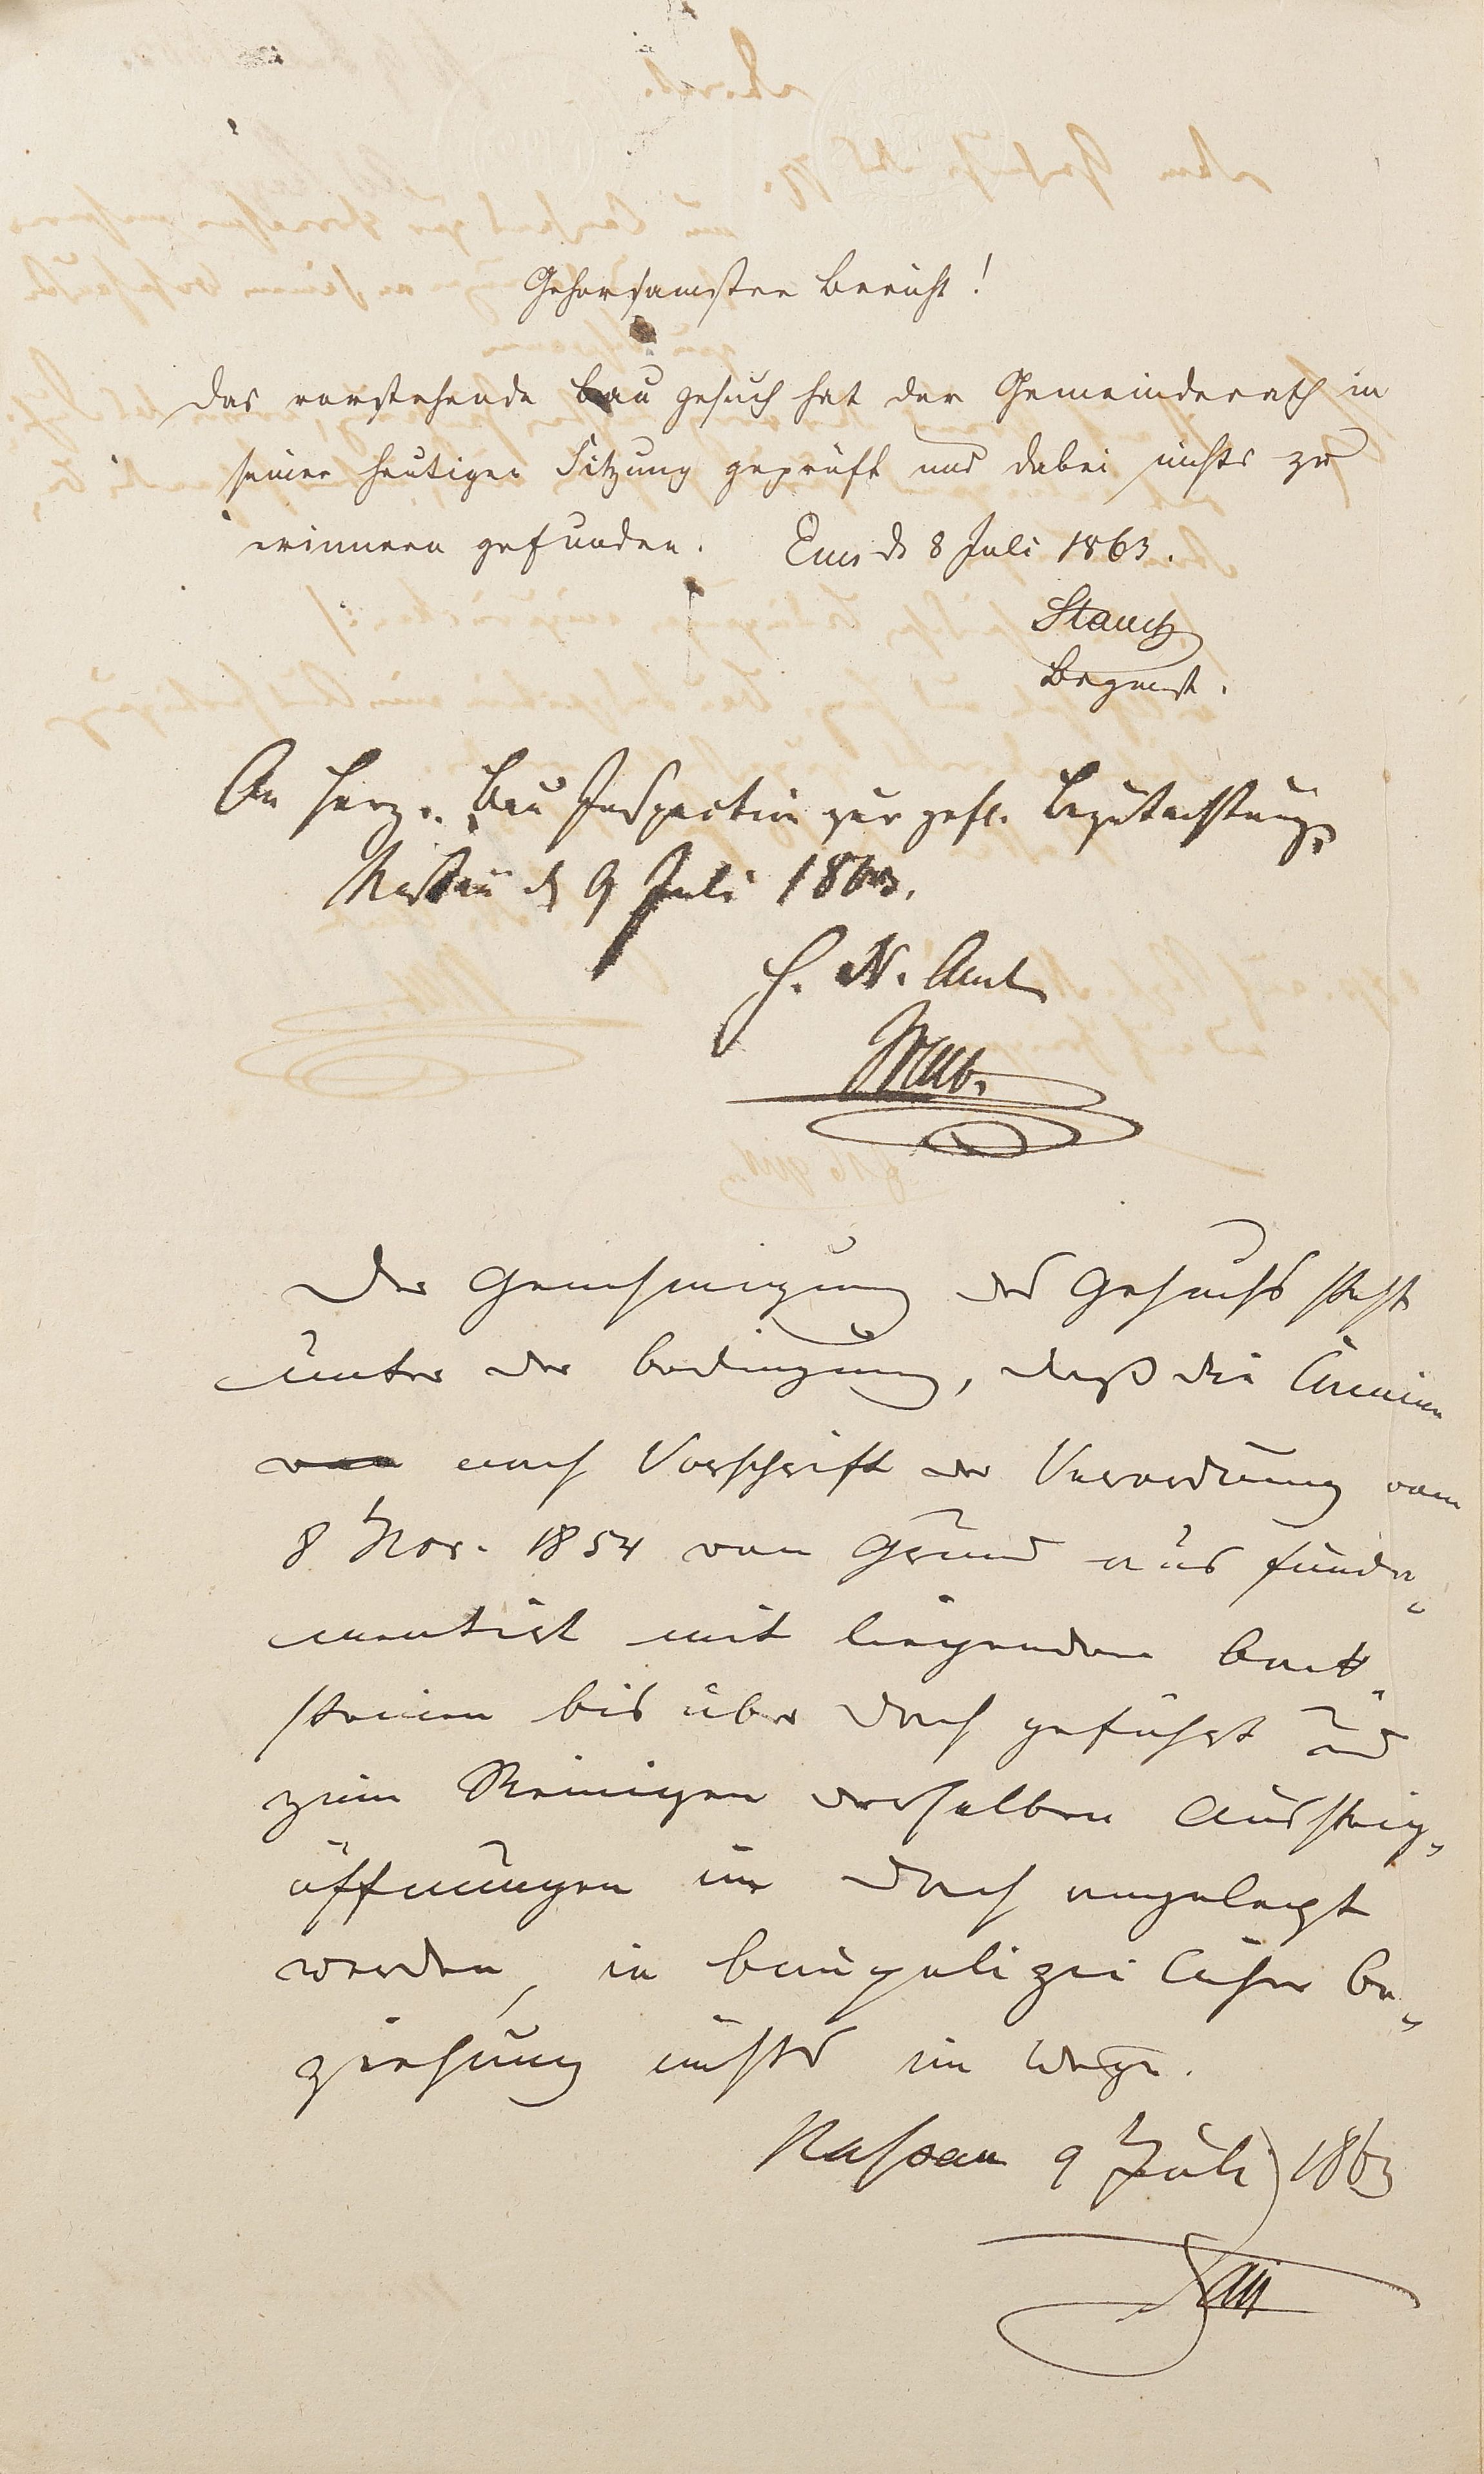 Gehorsamster Bericht!
Das vorstehende Baugesuch hat der Gemeinderath in
seiner heutigen Sitzung geprüft und dabei nichts zu
erinnern gefunden. Ems d 8 Juli 1863.
Bgmst.
An Herz. Bau Inspection zur gefl. Begutachtung
Nassau d 9 Juli 1863.
H. N. Amt
Der Genehmigung des Gesuchs steht
unter der Bedingung, daß die Camine
von nach Vorschrift der Verordnung vom
8 Nov. 1854 von Grund aus funda-
mentirt mit liegenden Back-
steinen bis über Dach geführt und
zum Reinigen derselben Aussteig-
öffnungen im Dach angelegt
werden, in baupolizeilicher Be-
ziehung nichts im Wege.
Nassau 9 Juli 1863